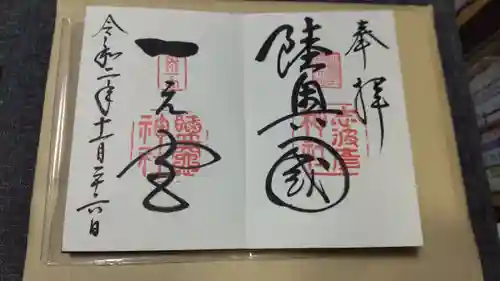 奉拝
陸奥國
志波彦
神社
一之宮
鹽竈
神社
令和二年十一月二十六日